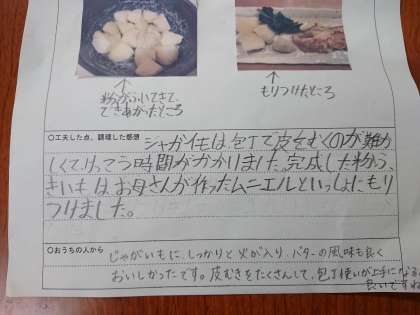 粉がふいてきて、
できあがたところ
もりつけたところ
○工夫した点、調理した感想
ジャガイモは、包丁で皮をむくのが難か
しくてけっこう時間がかかりました。完成した粉ふ
きいもはお母さんが作ったムニエルといっしょにもり
つけました。
○おうちの人から
じゃがいもに、しっかりと火が入り、バターの風味も良く
おいしかったです。皮むきをたくさんして、包丁使いが上手になると
良いですね